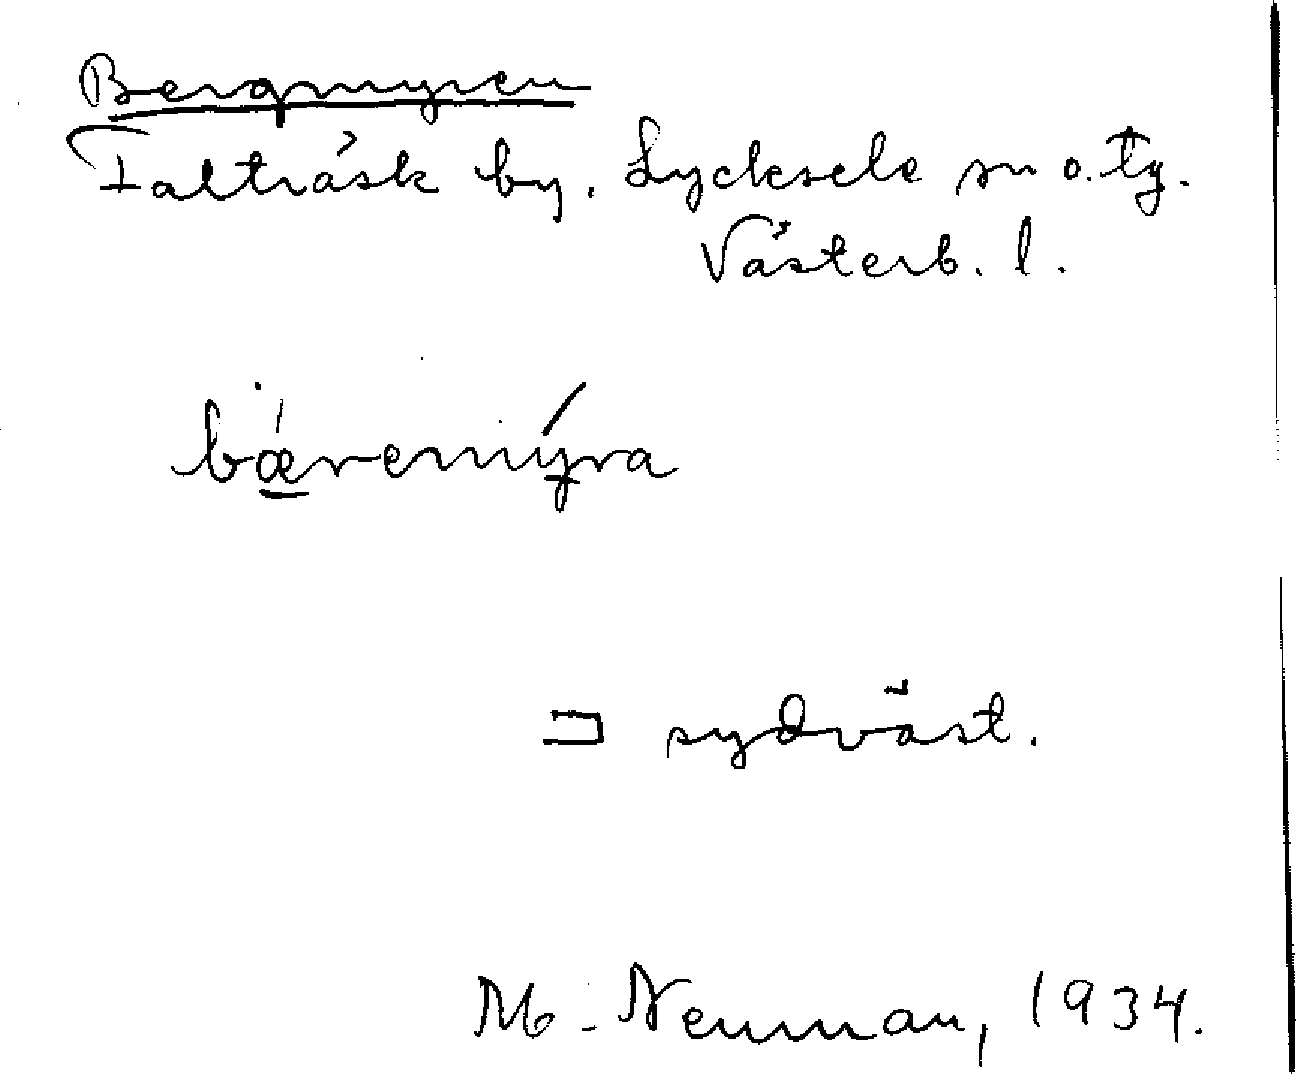 Bergmyren
Falträsk by. Lycksele sn o. tg.
Västerb. l.
bæremýra
⊐ sydväst.
M. Neuman, 1934.